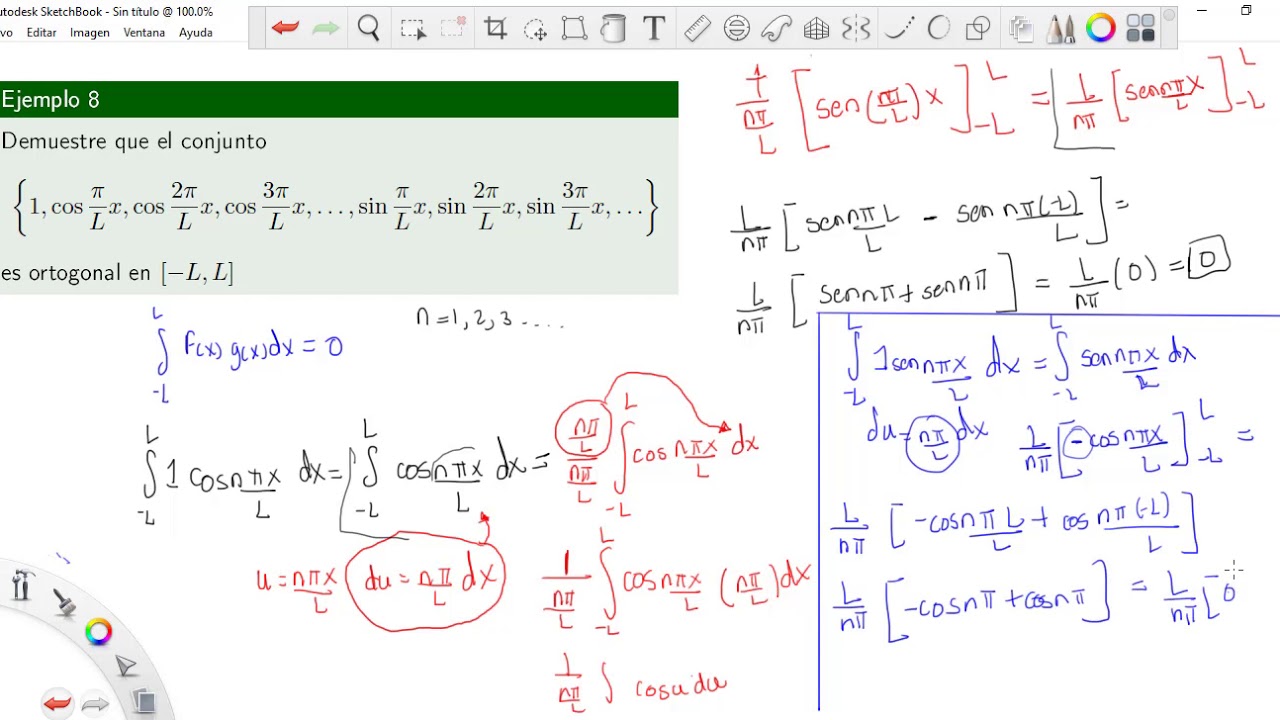 utodesk SketchBook - Sin título @ 100.0%
vo Editar Imagen Ventana Ayuda
Ejemplo 8
Demuestre que el conjunto
{1, cos π/L x, cos 2π/L x, cos 3π/L x, ..., sin π/L x, sin 2π/L x, sin 3π/L x, ...}
es ortogonal en [−L, L]
∫_{-L}^{L} f(x) g(x) dx = 0
n = 1, 2, 3 ......
∫_{-L}^{L} 1 cos nπx/L dx = ∫_{-L}^{L} cos nπx/L dx = (nπ/L)/(nπ/L) ∫_{-L}^{L} cos nπx/L dx
u = nπx/L du = nπ/L dx
1/(nπ/L) ∫_{-L}^{L} cos nπx/L (nπ/L) dx
1/(nπ/L) ∫ cos u du
1/(nπ/L) [sen (nπ/L) x]_{-L}^{L} = L/nπ [sen nπx/L]_{-L}^{L}
L/nπ [sen nπL/L - sen nπ(-L)/L] =
L/nπ [sen nπ + sen nπ] = L/nπ (0) = 0
∫_{-L}^{L} 1 sen nπx/L dx = ∫_{-L}^{L} sen nπx/L dx
du = nπ/L dx L/nπ [-cos nπx/L]_{-L}^{L} =
L/nπ [-cos nπL/L + cos nπ(-L)/L]
L/nπ [-cos nπ + cos nπ] = L/nπ [0